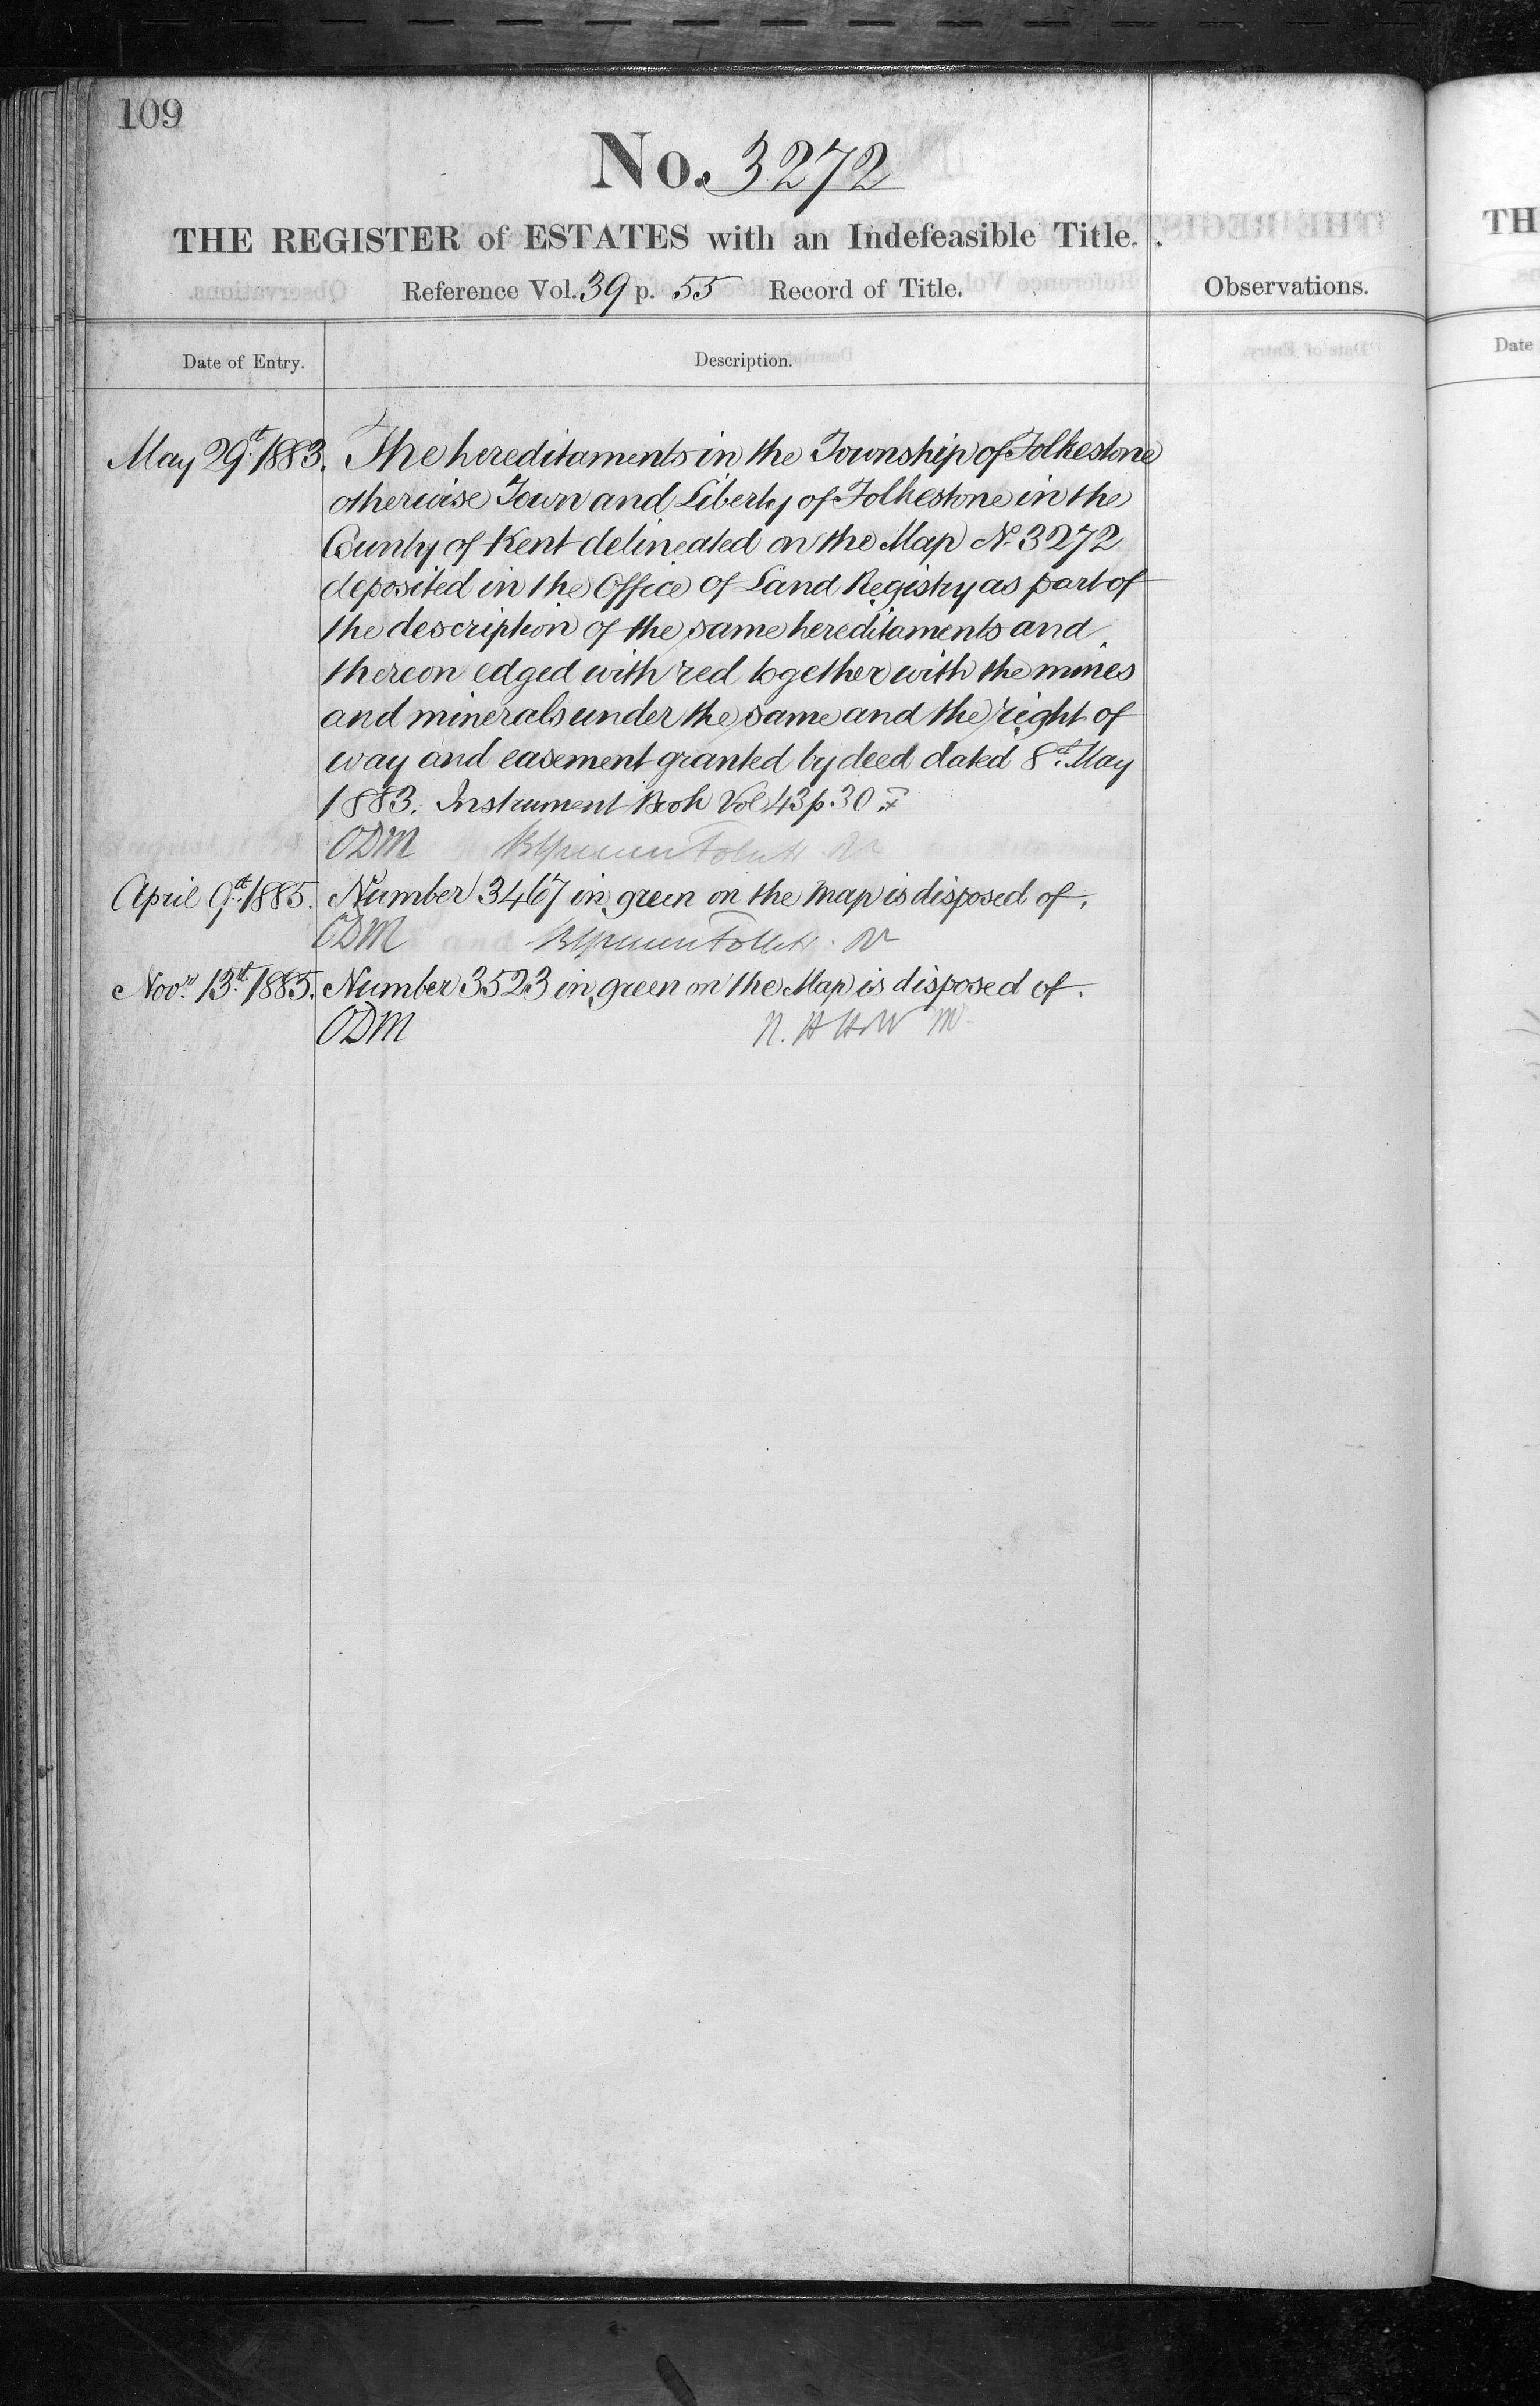 109
No. 3272
THE REGISTER of ESTATES with an Indefeasible Title.
Reference Vol. 39 p. 55 Record of Title.
Observations.
Date of Entry.
Description.
May 29th 1883. The hereditaments in the Township of Folkestone
otherwise Town and Liberty of Folkestone in the
County of Kent delineated on the Map No. 3272
deposited in the Office of Land Registry as part of
the description of the same hereditaments and
thereon edged with red together with the mines
and minerals under the same and the right of
way and easement granted by deed dated 8th May
1883. Instrument Book Vol 43 p. 30
ODM
April 9th 1885. Number 3467 in green on the map is disposed of.
ODM
Novr. 13th 1885. Number 3523 in green on the Map is disposed of.
ODM
TH
Date